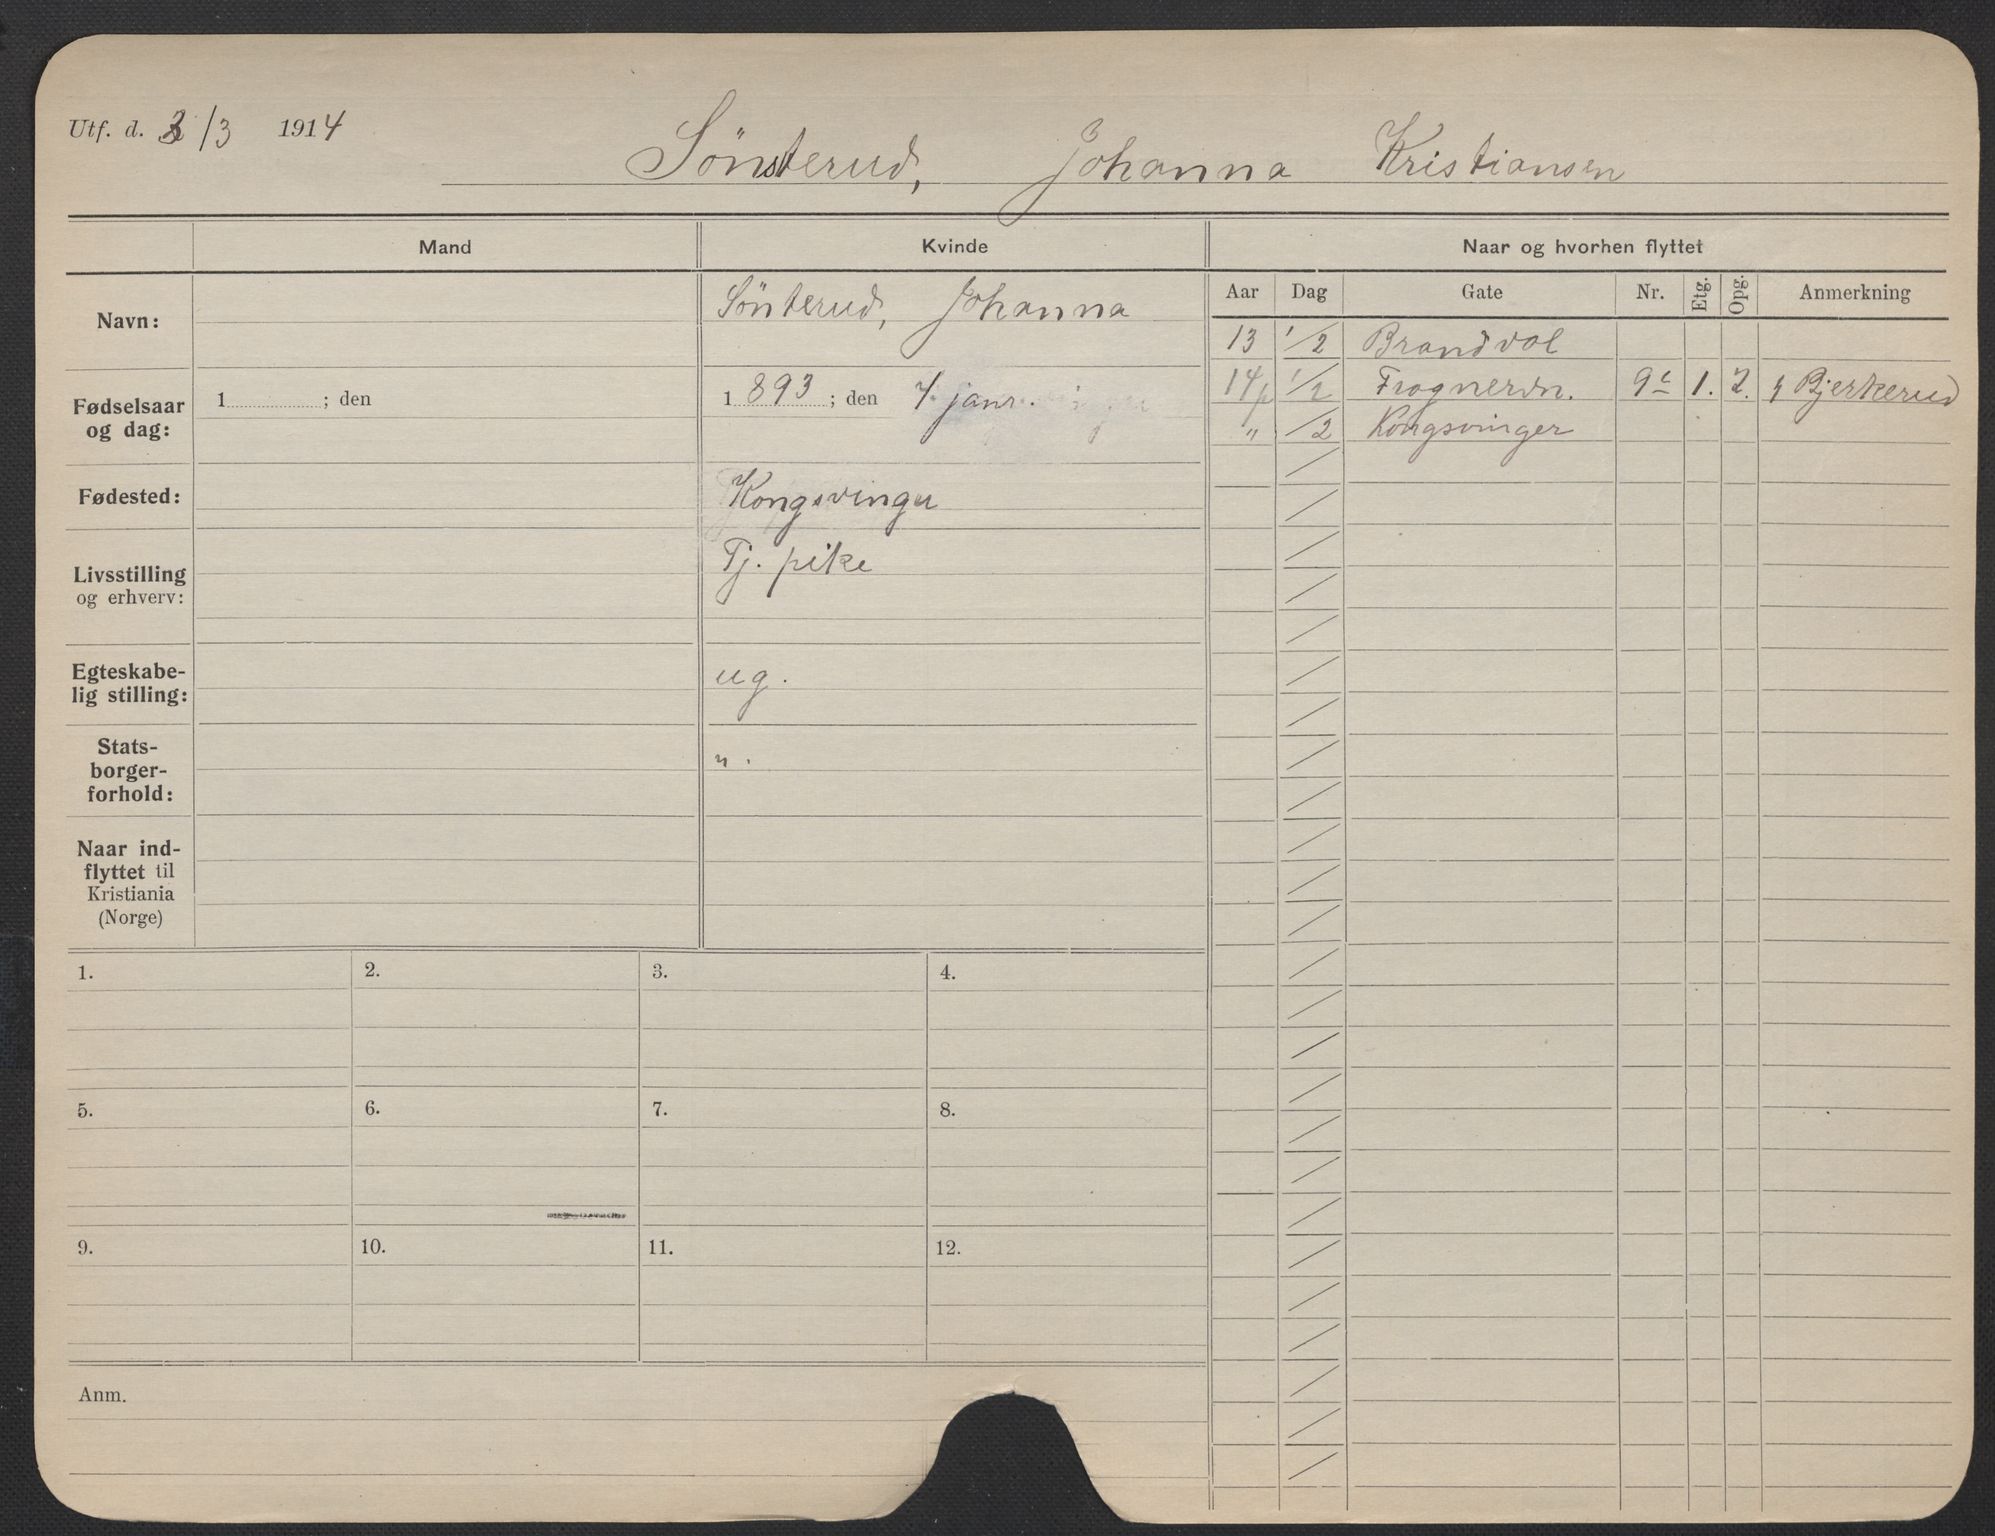 Utf. d. /3 1914
Sönsterud, Johanna Kristiansen
Mand
Kvinde
Naar og hvorhen flyttet
Navn:
Sönterud, Johanna
Aar Dag Gate Nr. Etg. Opg. Anmerkning
13 1/2 Brandvol
14 1/2 Frognervn. 9c 1. 2. Bjerkerud
" /2 Kongsvinger
Fødselsaar
og dag:
1 ; den
1893 ; den 4. janr.
Fødested:
Kongsvinger
Livsstilling
og erhverv:
Tj. pike
Egteskabe-
lig stilling:
ug.
Stats-
borger-
forhold:
n.
Naar ind-
flyttet til
Kristiania
(Norge)
1. 2. 3. 4.
5. 6. 7. 8.
9. 10. 11. 12.
Anm.